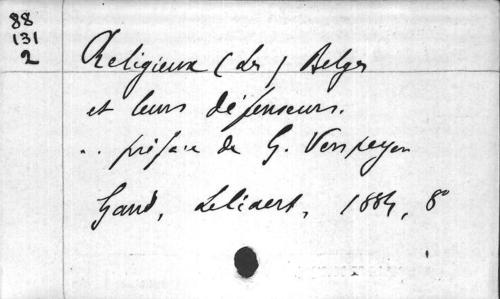 88
131
2
Religieux (Les) Belges
et leurs défenseurs.
.. préface de G. Verspeyen
Gand, Leliaert, 1884, 8°